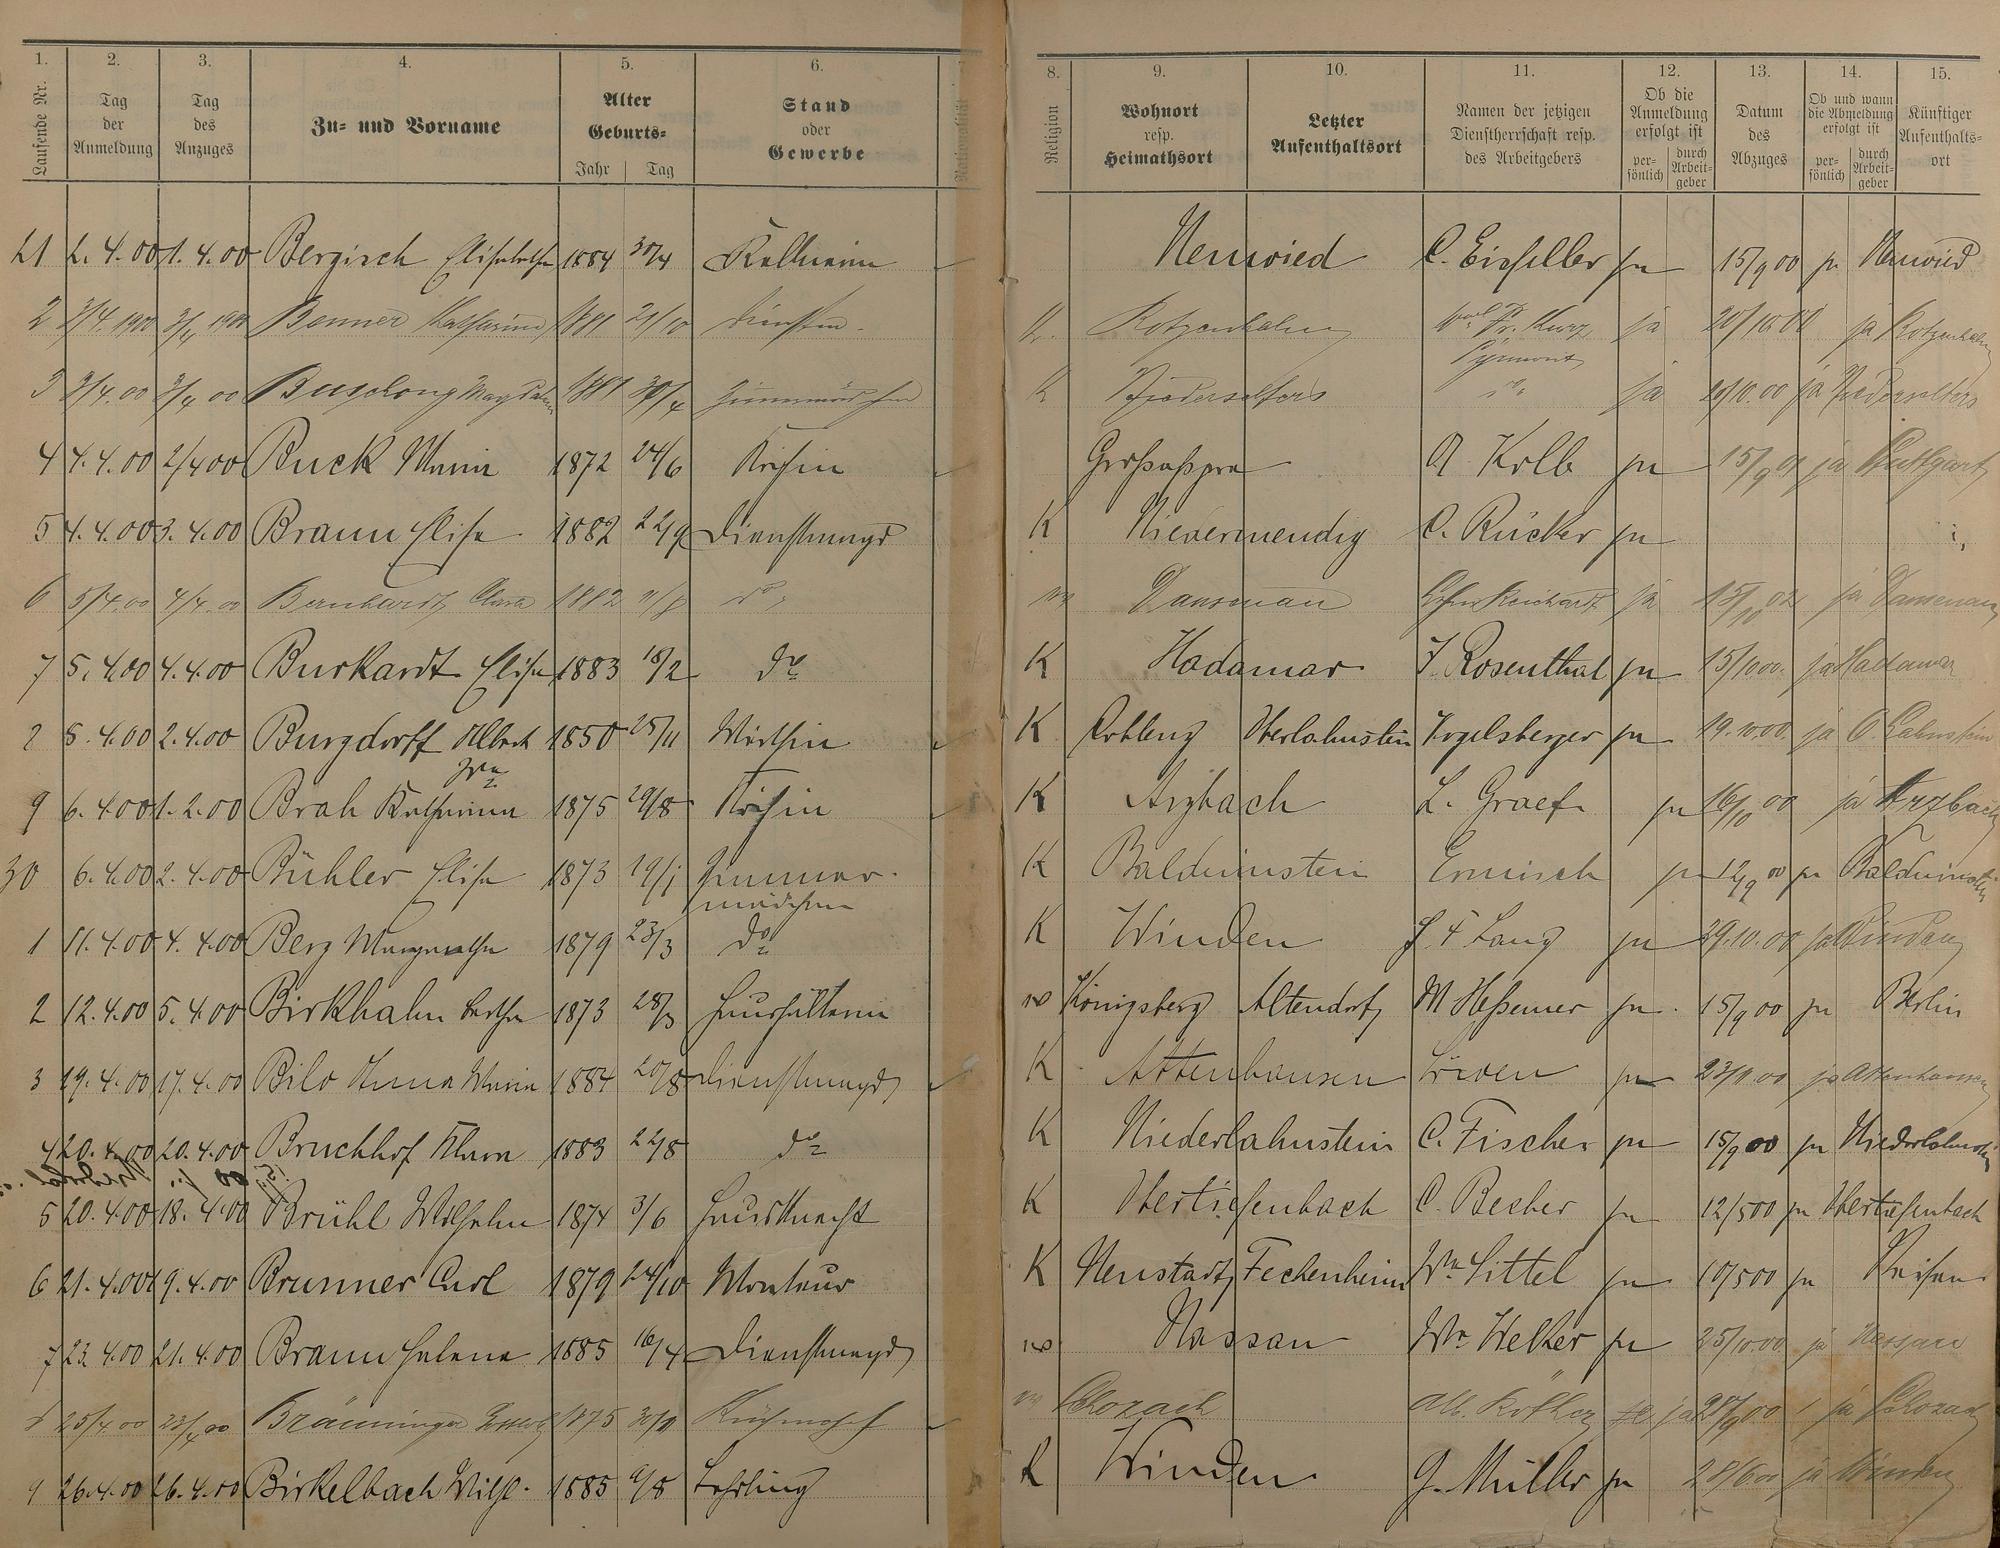 1. 2. 3. 4. 5. 6.
Laufende Nr. Tag der Anmeldung Tag des Anzuges Zu- und Vorname Alter Geburts- Jahr Tag Stand oder Gewerbe
8. 9. 10. 11. 12. 13. 14. 15.
Religion Wohnort resp. Heimathsort Letzter Aufenthaltsort Namen der jetzigen Dienstherrschaft resp. des Arbeitgebers Ob die Anmeldung erfolgt ist persönlich durch Arbeitgeber Datum des Abzuges Ob und wann die Abmeldung erfolgt ist persönlich durch Arbeitgeber Künftiger Aufenthaltsort
21 2. 4. 00 1. 4. 00 Bergisch Elisabetha 1884 30/4 Kellnerin Neuwied C. Eisfeller ja 15/9 00 ja Neuwied
2 3/4. 1900 3/4 1900 Benner Katharina 1881 21/10 K. Rotzenhahn Fr. Kurz ja 20/10.00 ja Rotzenhahn
Pyrmont
3 3/4.00 3/4 00 Magdalena 1881 30/4 Zimmermädchen K Niederselters do ja 20/10.00 ja Niederselters
4 4. 4. 00 2/4 00 Buck Maria 1872 24/6 Köchin Großaspra A Kolb ja 15/9 00 ja Stuttgart
5 4. 4. 00 3. 4. 00 Braun Elise 1882 22/9 Dienstmagd K Niedermendig C. Rücker ja
6 5/4.00 4/4.00 Bernhardt Clara 1882 do Dausenau Reichardt ja ja Dausenau
7 5. 4.00 4. 4. 00 Burkardt Elise 1883 18/2 do K Hadamar J. Rosenthal ja 15/10 00. ja Hadamar
8 5. 4.00 2. 4.00 Burgdorff Albert 1850 25/11 Wirthin K Coblenz Oberlahnstein Vogelsberger ja 19.10.00 ja O. Lahnstein
Wwe
9 6. 4.00 1. 2. 00 Brah Katharina 1875 29/8 Köchin K Arzbach L. Graef ja 16/10 00 ja Arzbach
30 6. 4.00 2. 4.00 Bühler Elise 1873 19/1 Zimmer- K Balduinstein Ermisch ja 12/9 00 ja Balduinstein
mädchen
1 11. 4.00 4. 4.00 Berg Margaretha 1879 23/3 do K Winden J F Lang ja 29.10.00 ja Winden
2 12. 4.00 5. 4.00 Birkhahn Bertha 1873 28/3 Haushälterin Königsberg Altendorf M Heßemer ja 15/9 00 ja Berlin
3 19. 4.00 17. 4. 00 Bilo Anna Maria 1884 20/8 Dienstmagd K Attenhausen ja 23/9.00 ja Attenhausen
4 20. 4.00 20. 4.00 Bruchhof Klara 1883 22/8 do K Niederlahnstein C. Fischer ja 15/9 00 ja Niederlahnstein
5 20. 4.00 18. 4.00 Brühl Wilhelm 1874 3/6 Hausknecht K Obertiefenbach C. Becher ja 12/5 00 ja Obertiefenbach
6 21. 4.00 19. 4.00 Brunner Carl 1879 24/10 Monteur K Neustadt Fechenheim Wm Sittel ja 10/5 00 ja
7 23. 4.00 21. 4.00 Braun Helene 1885 16/4 Dienstmagd Nassau Wm Welker ja 25/10.00 ja Nassau
8 25/4.00 23/4 00 Bräuninger 1875 30/9 Küchenchef Alb. ja 28/9 00 ja
9 26.4.00 26. 4.00 Birkelbach Wilh. 1885 6/8 Lehrling K Winden G. Müller ja 28/6 00 ja Winden